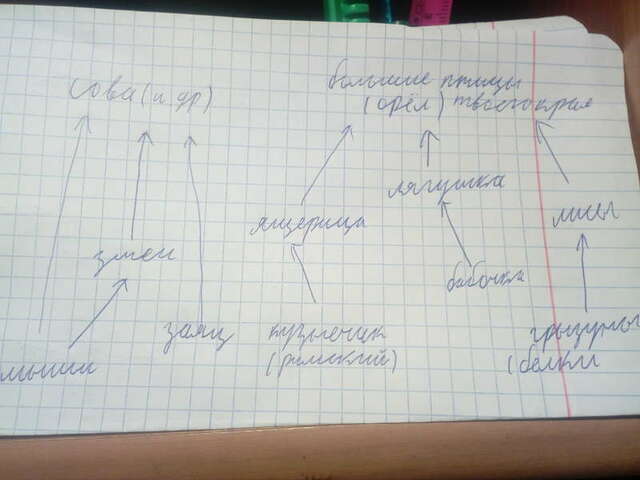 сова (и др)
большие птицы
(орёл) твоего края
лягушка
ящерица
лисы
змеи
бабочка
заяц
кузнечик
грызуны
мыши
(белки